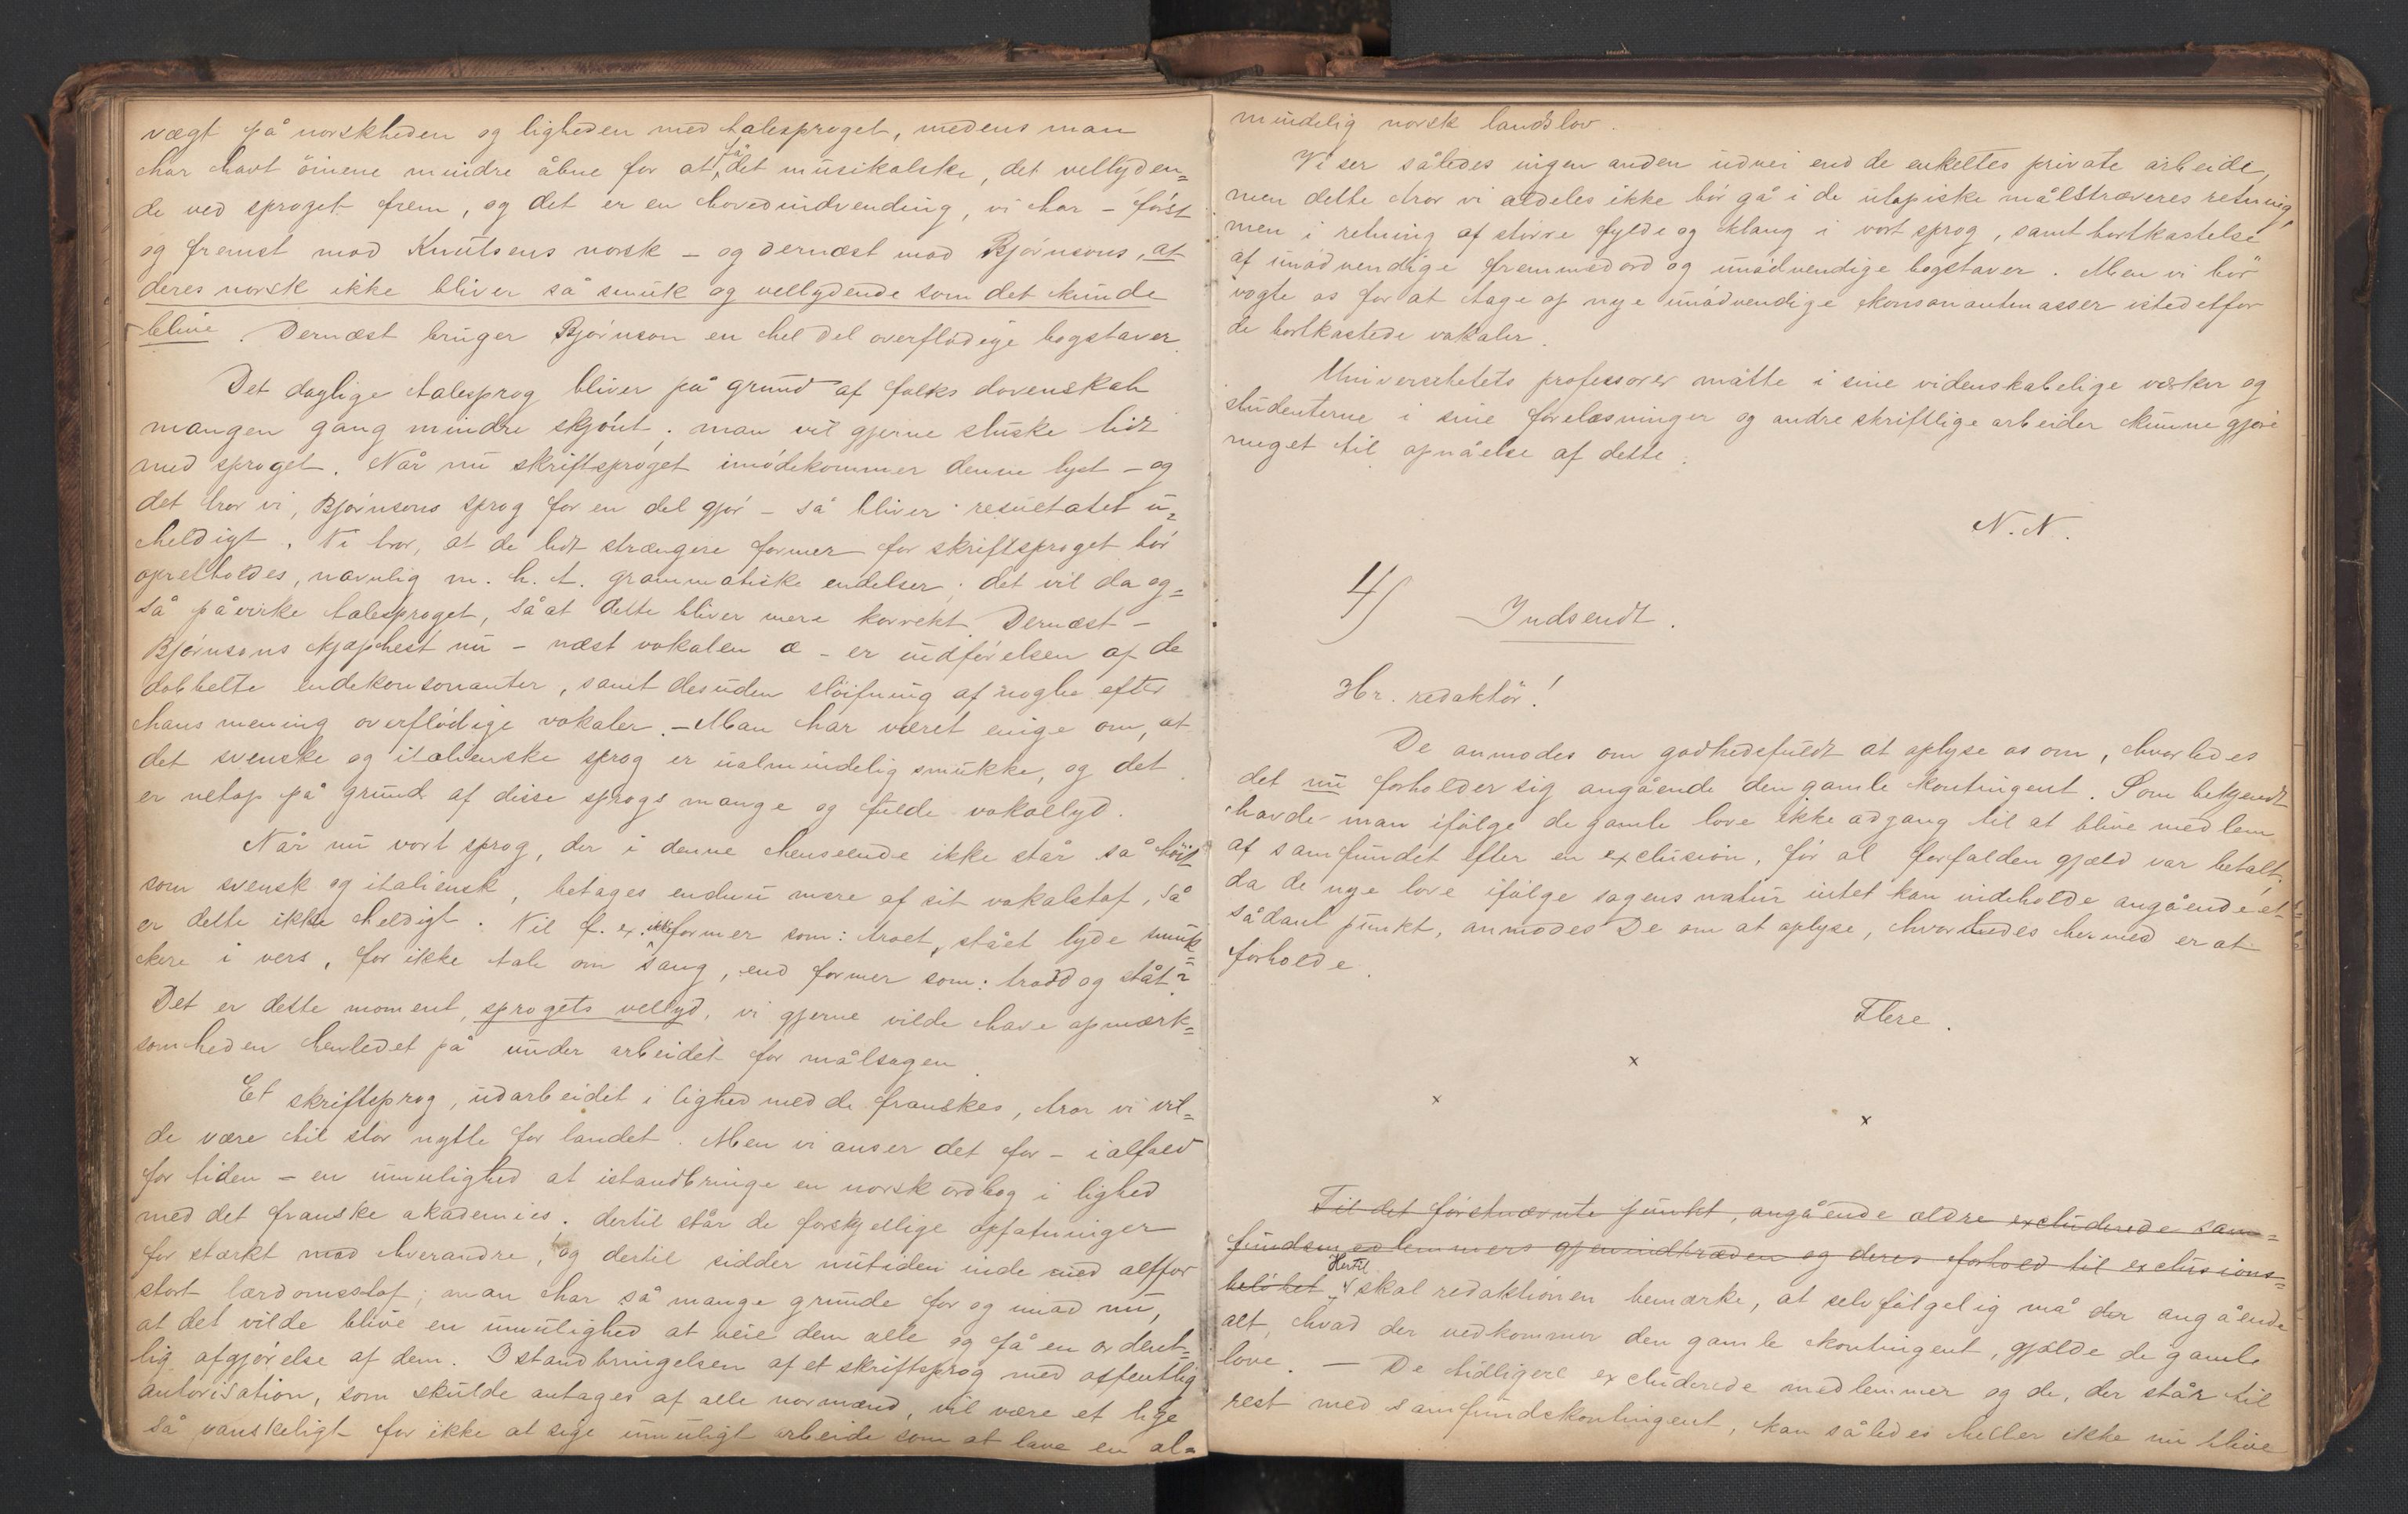 vægt på norskheden og ligheden med talesproget, medens man
har havt öinene mindre åbne for at få det musikalske, det vellyden=
de ved sproget frem, og det er en hovedindvending, vi har – först
og fremst mod Knutsens norsk – og dernæst mod Bjørnsons, at
deres norsk ikke bliver så smuk og vellydende som det kunde
blive. Dernæst bruger Bjørnson en hel del overflödige bogstaver.
Det daglige talesprog bliver på grund af folks dovenskab
mangen gang mindre skjönt; man vil gjerne sluske lidt
med sproget. Når nu skriftsproget imödekommer denne lyst – og
det tror vi, Bjørnsons sprog for en del gjör – så bliver resultatet u=
heldigt. Vi tror, at de lidt strængere former for skriftsproget bör
opretholdes, navnlig m. h. t. grammatiske endelser; det vil da og=
så påvirke talesproget, så at dette bliver mere korrekt. Dernæst –
Bjørnsons kjæphest nu – næst vokalen a – er indförelsen af de
dobbelte endekonsonanter, samt desuden slöifning af nogle efter
hans mening overflödige vokaler. – Man har været enige om, at
det svenske og italienske sprog er ualmindelig smukke, og det
er netop på grund af disse sprogs mange og fulde vokallyd.
Når nu vort sprog, der i denne henseende ikke står så höit
som svensk og italiensk, betages endnu mere af sit vokalstof, så
er dette ikke heldigt. Vil f. ex. ikke former som: troet, stået lyde smuk=
kere i vers, for ikke tale om sang, end former som: trodd og ståt?
Det er dette moment, sprogets vellyd, vi gjerne vilde have opmærk=
somheden henledet på under arbeidet for målsagen.
Et skriftsprog, udarbeidet i lighed med de franskes, tror vi vil=
de være til stor nytte for landet. Men vi anser det for – ialfald
for tiden – en umulighed at istandbringe en norsk ordbog i lighed
med det franske akademies. dertil står de forskjellige opfatninger
for stærkt mod hverandre, og dertil sidder nutiden inde med altfor
stort lærdomsstof; man har så mange grunde for og imod nu,
at det vilde blive en umulighed at veie dem alle og få en ordent=
lig afgjörelse af dem. Istandbringelsen af et skriftsprog med offentlig
autorisation, som skulde antages af alle normænd, vil være et lige
så vanskeligt for ikke at sige umuligt arbeide som at lave en al=
mindelig norsk landslov.
Vi ser således ingen anden udvei end de enkeltes private arbeide,
men dette tror vi aldeles ikke bör gå i de utopiske målstræveres retning,
men i retning af större fylde og klang i vort sprog, samt bortkastelse
af unödvendige fremmedord og unödvendige bogstaver. Men vi bör
vogte os for at tage op nye unödvendige konsonantmasser istedetfor
de bortkastede vokaler.
Universitetets professorer måtte i sine videnskabelige værker og
studenterne i sine forelæsninger og andre skriftlige arbeider kunne gjöre
meget til opnåelse af dette.
N. N.
4) Indsendt.
Hr. redaktör!
De anmodes om godhedsfuldt at oplyse os om, hvorledes
det nu forholder sig angående den gamle kontingent. Som bekjendt
havde man ifölge de gamle love ikke adgang til at blive medlem
af samfundet efter en exclusion, för al forfalden gjæld var betalt;
da de nye love ifölge sagens natur intet kan indeholde angående et
sådant punkt, anmodes De om at oplyse, hvorledes hermed er at
forholde.
Flere.
x
x x
Til det förstnævnte punkt, angående ældre excluderede sam=
fundsmedlemmers gjenindtræden og deres forhold til exclusions=
belöbet Hertil skal redaktionen bemærke, at selvfölgelig må der angående
alt, hvad der vedkommer den gamle kontingent, gjælde de gamle
love. – De tidligere excluderede medlemmer og de, der står til
rest med samfundskontingent, kan således heller ikke nu blive